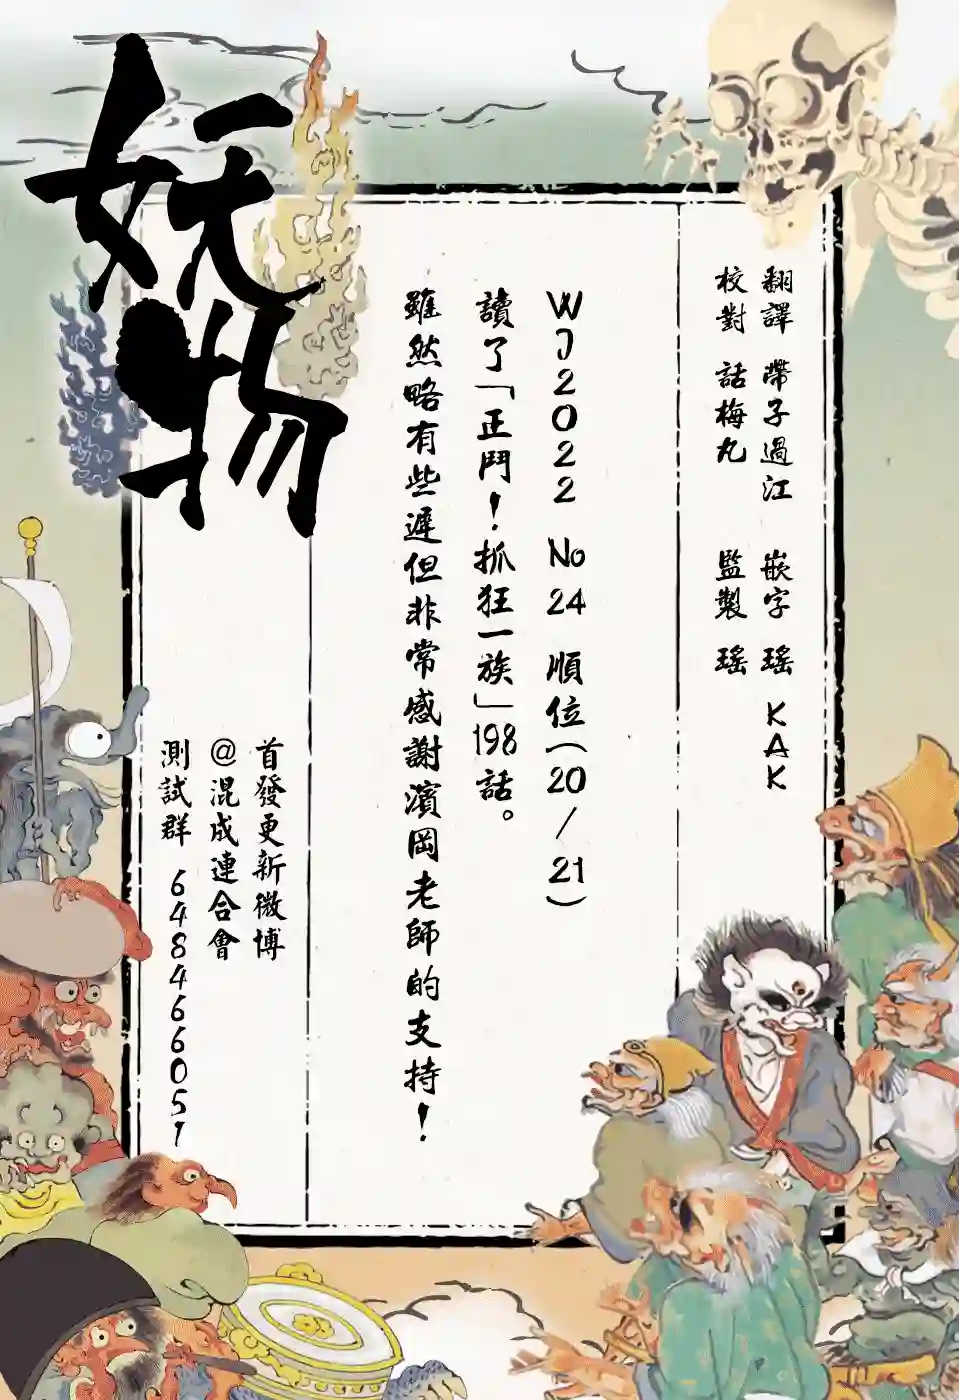 妖物
翻譯 帶子過江 嵌字 瑤 KAK
校對 話梅丸 監製 瑤
WJ2022 No24 順位(20/21)
讀了「正鬥！抓狂一族」198話。
雖然略有些遲但非常感謝濱岡老師的支持！
首發更新微博
@混成連合會
測試群 648466051